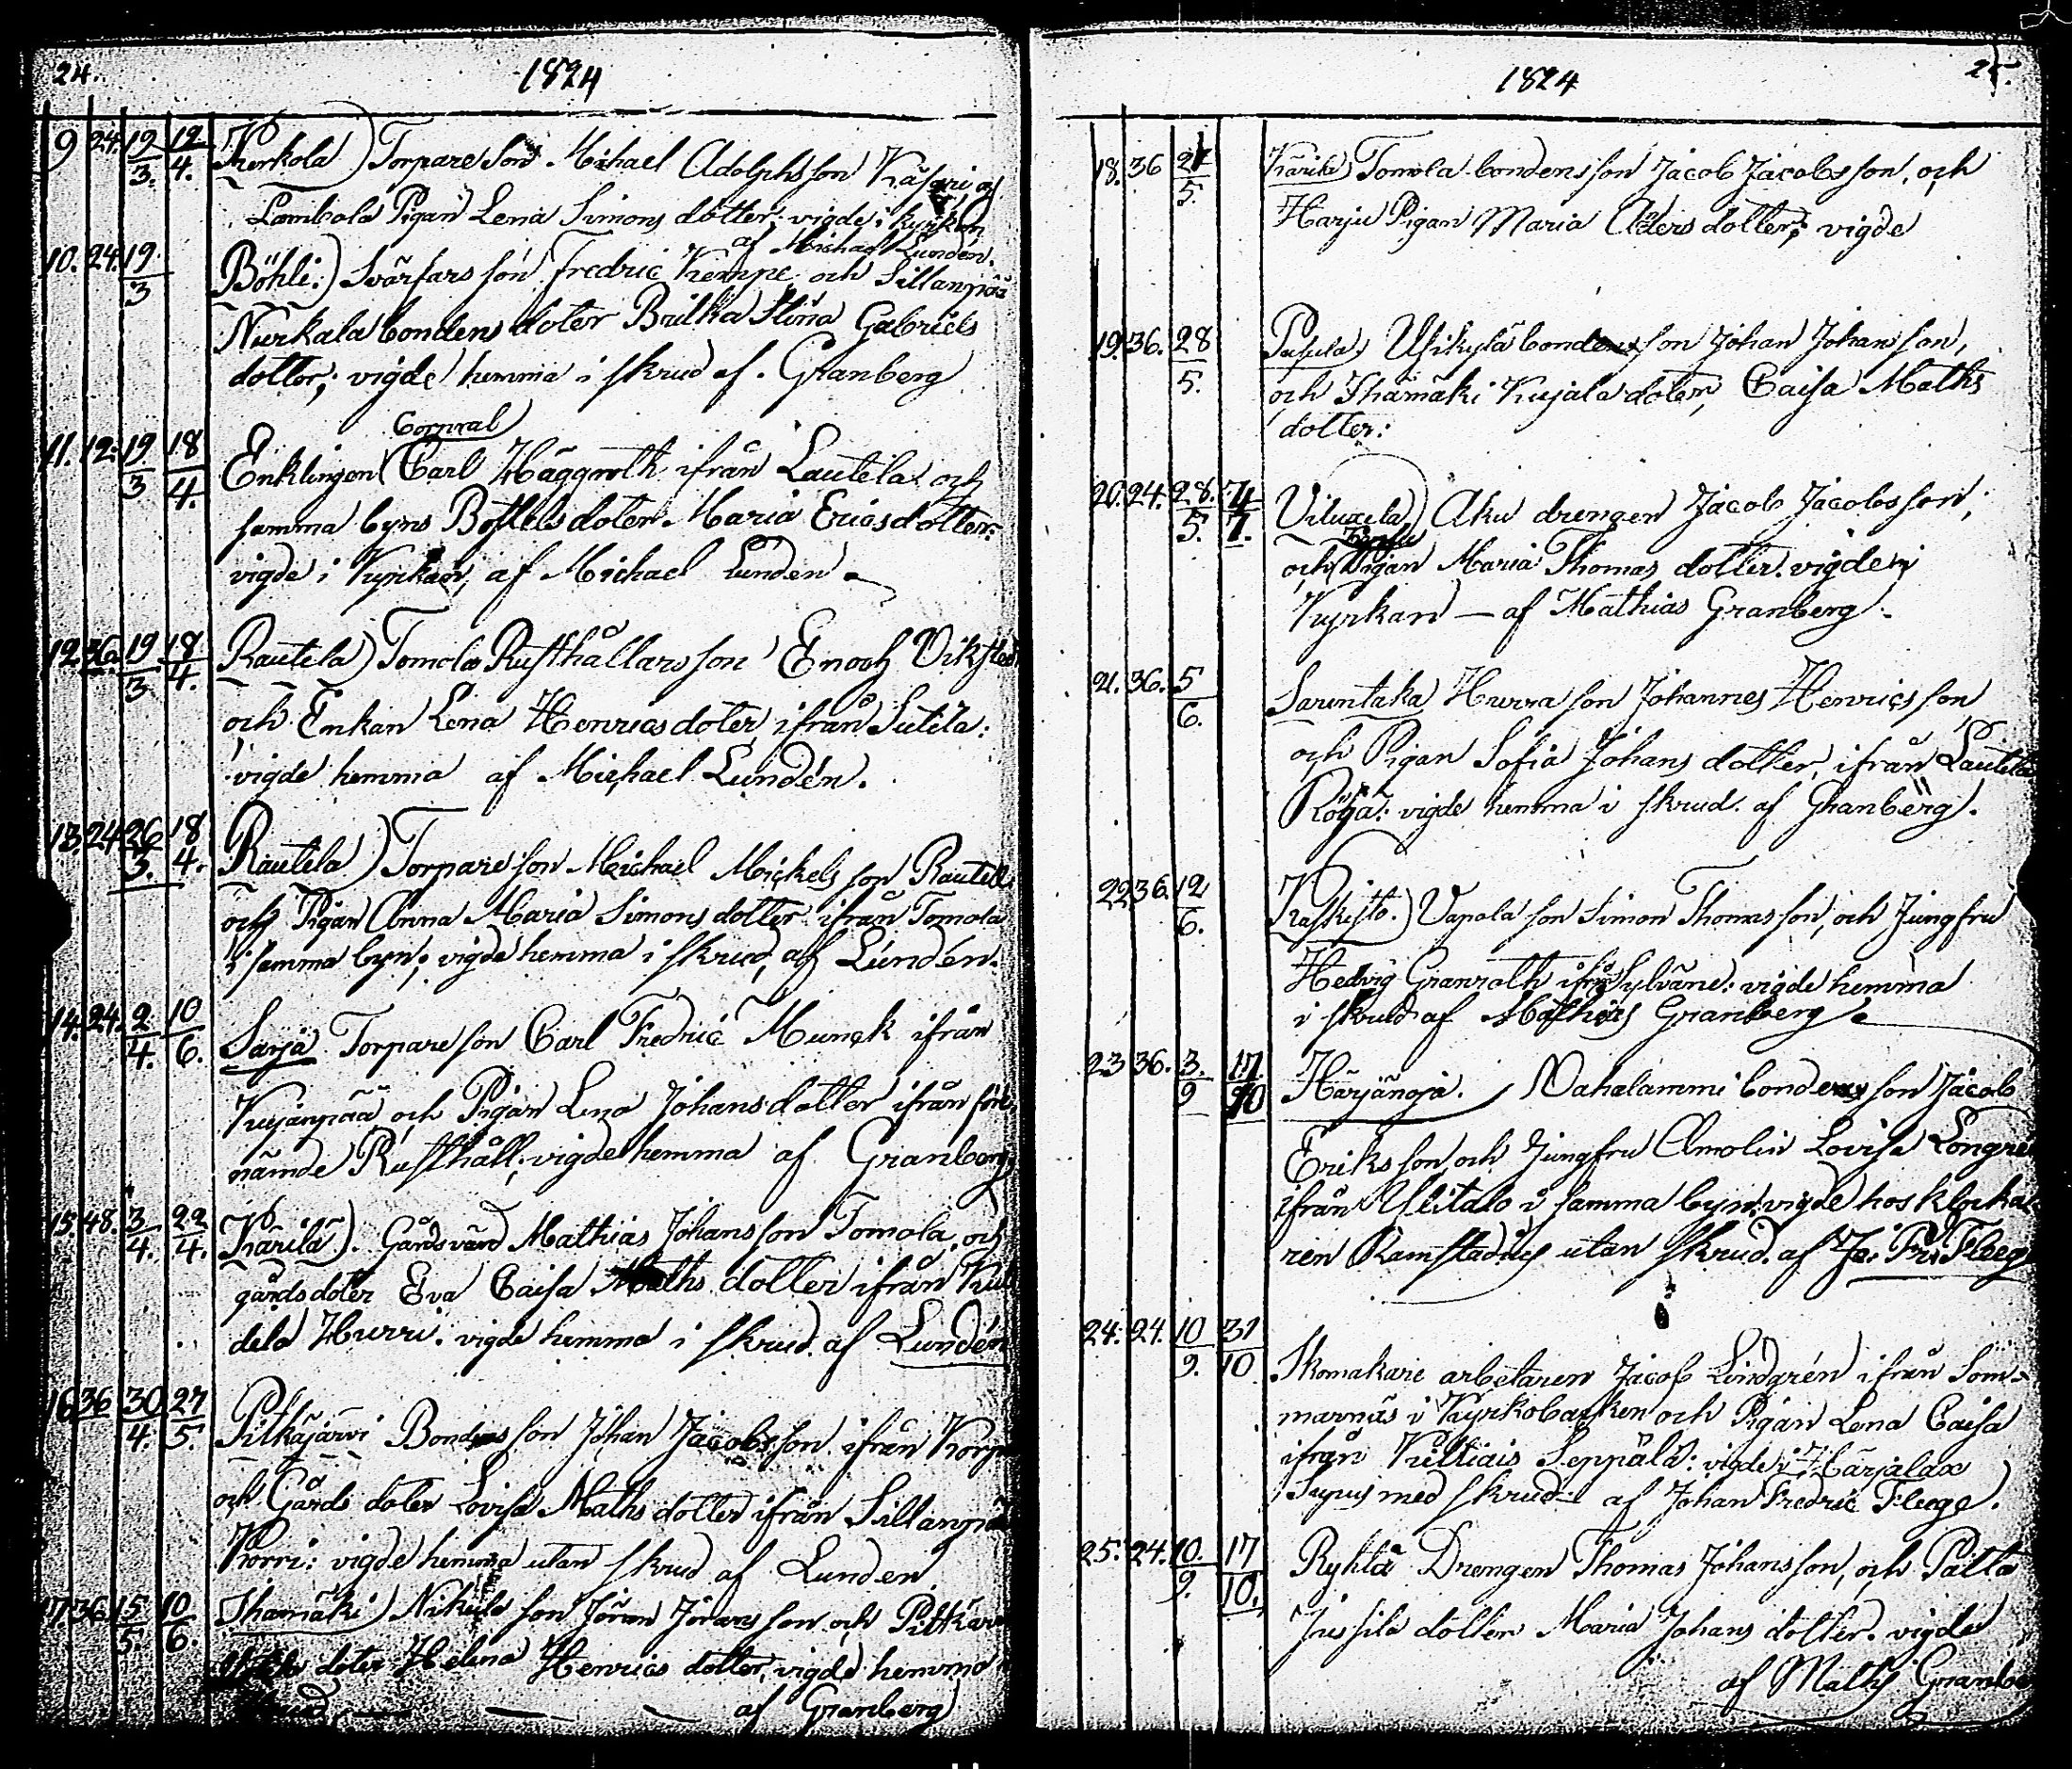 24. 1824
9 24. 19/3. 12/4. Kerkola) Torpare Son Michael Adolphsson Käfari, och
Lambola Pigan Lena Simons dotter; vigde i kyrkan
af Michael Lunden.
10. 24. 19/3 Böhle:) Svarfars son Fredric Kempe och Sillanpää
Nurkala bondens doter Britha Stina Gabriels
dotter; vigde hemma i skrud af. Granberg
Corpral
11. 12: 19/3 18/4. Enklingen Carl Häggroth ifrån Lautela och
samma byns Böstels doter Maria Ericsdotter:
vigde i Kyrkan, af Michael Lunden.
12 36. 19/3 18/4. Rautela) Tomola Rusthållars son Enoch Viksted
och Enkan Lena Henrics doter, ifrån Sutila:
vigde hemma af Michael Lundén.
13. 24 26/3. 18/4. Rautela) Torpare son Michael Mickels son Rautell
och Pigan Anna Maria Simons dotter ifrån Tomola
i samma byn; vigde hemma i skrud, af Lundén.
14. 24. 2/4. 10/6. Sarja Torpare son Carl Fredric Munck ifrån
Kujanpää, och Pigan Lena Johans dotter ifrån för
nämde Rusthåll; vigde hemma af Granberg
15. 48. 3/4. 22/4. Kärilä). Gårdsvän Mathias Johansson Tomola, och
gårds doter Eva Caisa Maths dotter ifrån
dela Hurri. vigde hemma i skrud af Lundén
16 36 30/4. 27/5. Pitkäjärvi Bondens son Johan Jacobsson ifrån
och Gårds doter Lovisa Maths dotter ifrån Sillanpää
Korri: vigde hemma utan skrud af Lunden
17. 36. 15/5. 10/6. Ihamäki) Nikula son Jöran Jörans son och
doter Helena Henrics dotter, vigde hemma
af Granberg
1824 25.
18. 36 21/5. Kärilä) Tomola bondens son Jacob Jacobsson, och
Harju Pigan Maria dotter; vigde
19. 36. 28/5. Pusula) Usikylä bondens son Johan Johansson,
och Ihamäki Kujala doter, Caisa Maths
dotter:
20. 24. 28./5. 4/7. Viluxela) Aku drengen Jacob Jacobsson,
och Pigan Maria Thomas dotter. vigde i
Kyrkan — af Mathias Granberg.
21. 36. 5/6. Sarentaka) Hurra son Johannes Henrics son
och Pigan Sofia Johans dotter, ifrån Lautela
Röhja: vigde hemma i skrud. af Granberg.
22 36. 12/6. Raskisto.) Vapola son Simon Thomas son, och Jungfru
Hedvig Granroth ifrån Sylväne: vigde hemma
i skrud af Mathias Granberg
23 36. 3./9 17./10 Härjänoja. Nahalammi bondens son Jacob
Eriks son, och Jungfru Amolin Lovisa Longre
ifrån Ylitalo i samma byn: vigde hos klocka-
ren Ramstadius utan skrud. af Jo. Fri. Fleege
24: 24. 10/9. 31/10 Skomakare arbetaren Jacob Lindgrén ifrån Som-
marnäs i Kyrkobacken och Pigan Lena Caisa
ifrån Kiltiais Seppälä: vigde i Härjalax
Supus med skrud af Johan Fredric Flege.
25. 24. 10./9. 17/10. Ryhtä Drengen Thomas Johansson, och Palta
Jussila dotter Maria Johans dotter. vigde
af Maths Granbe